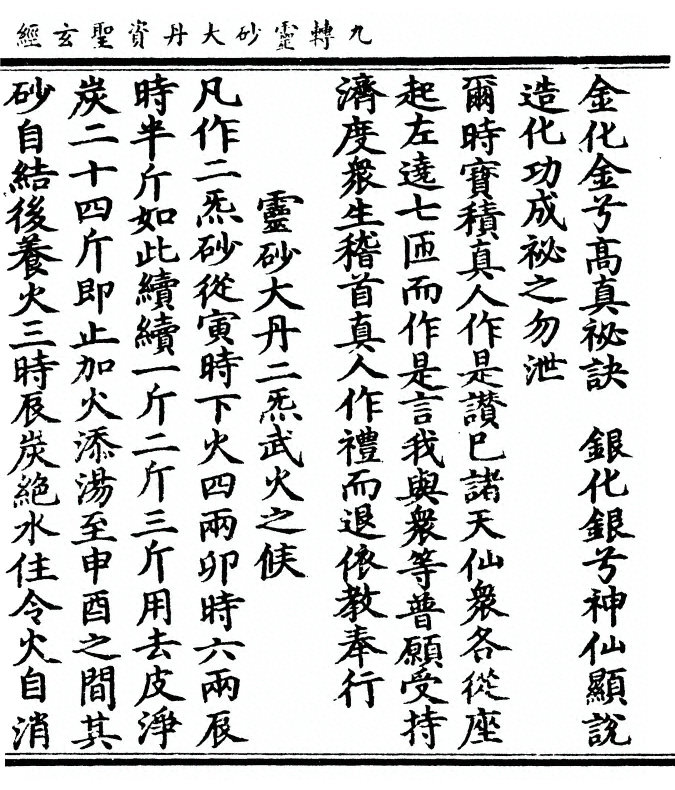 九轉靈砂大丹資聖玄經
金化金兮高真祕訣　銀化銀兮神仙顯說
造化功成祕之勿泄
爾時寶積真人作是讚巳諸天仙衆各從座
起左遶七匝而作是言我與衆等普願受持
濟度衆生稽首真人作禮而退依教奉行
靈砂大丹二炁武火之候
凡作二炁砂從寅時下火四兩卯時六兩辰
時半斤如此續續一斤二斤三斤用去皮淨
炭二十四斤即止加火添湯至申酉之間其
砂自結後養火三時辰炭絶水住令火自消